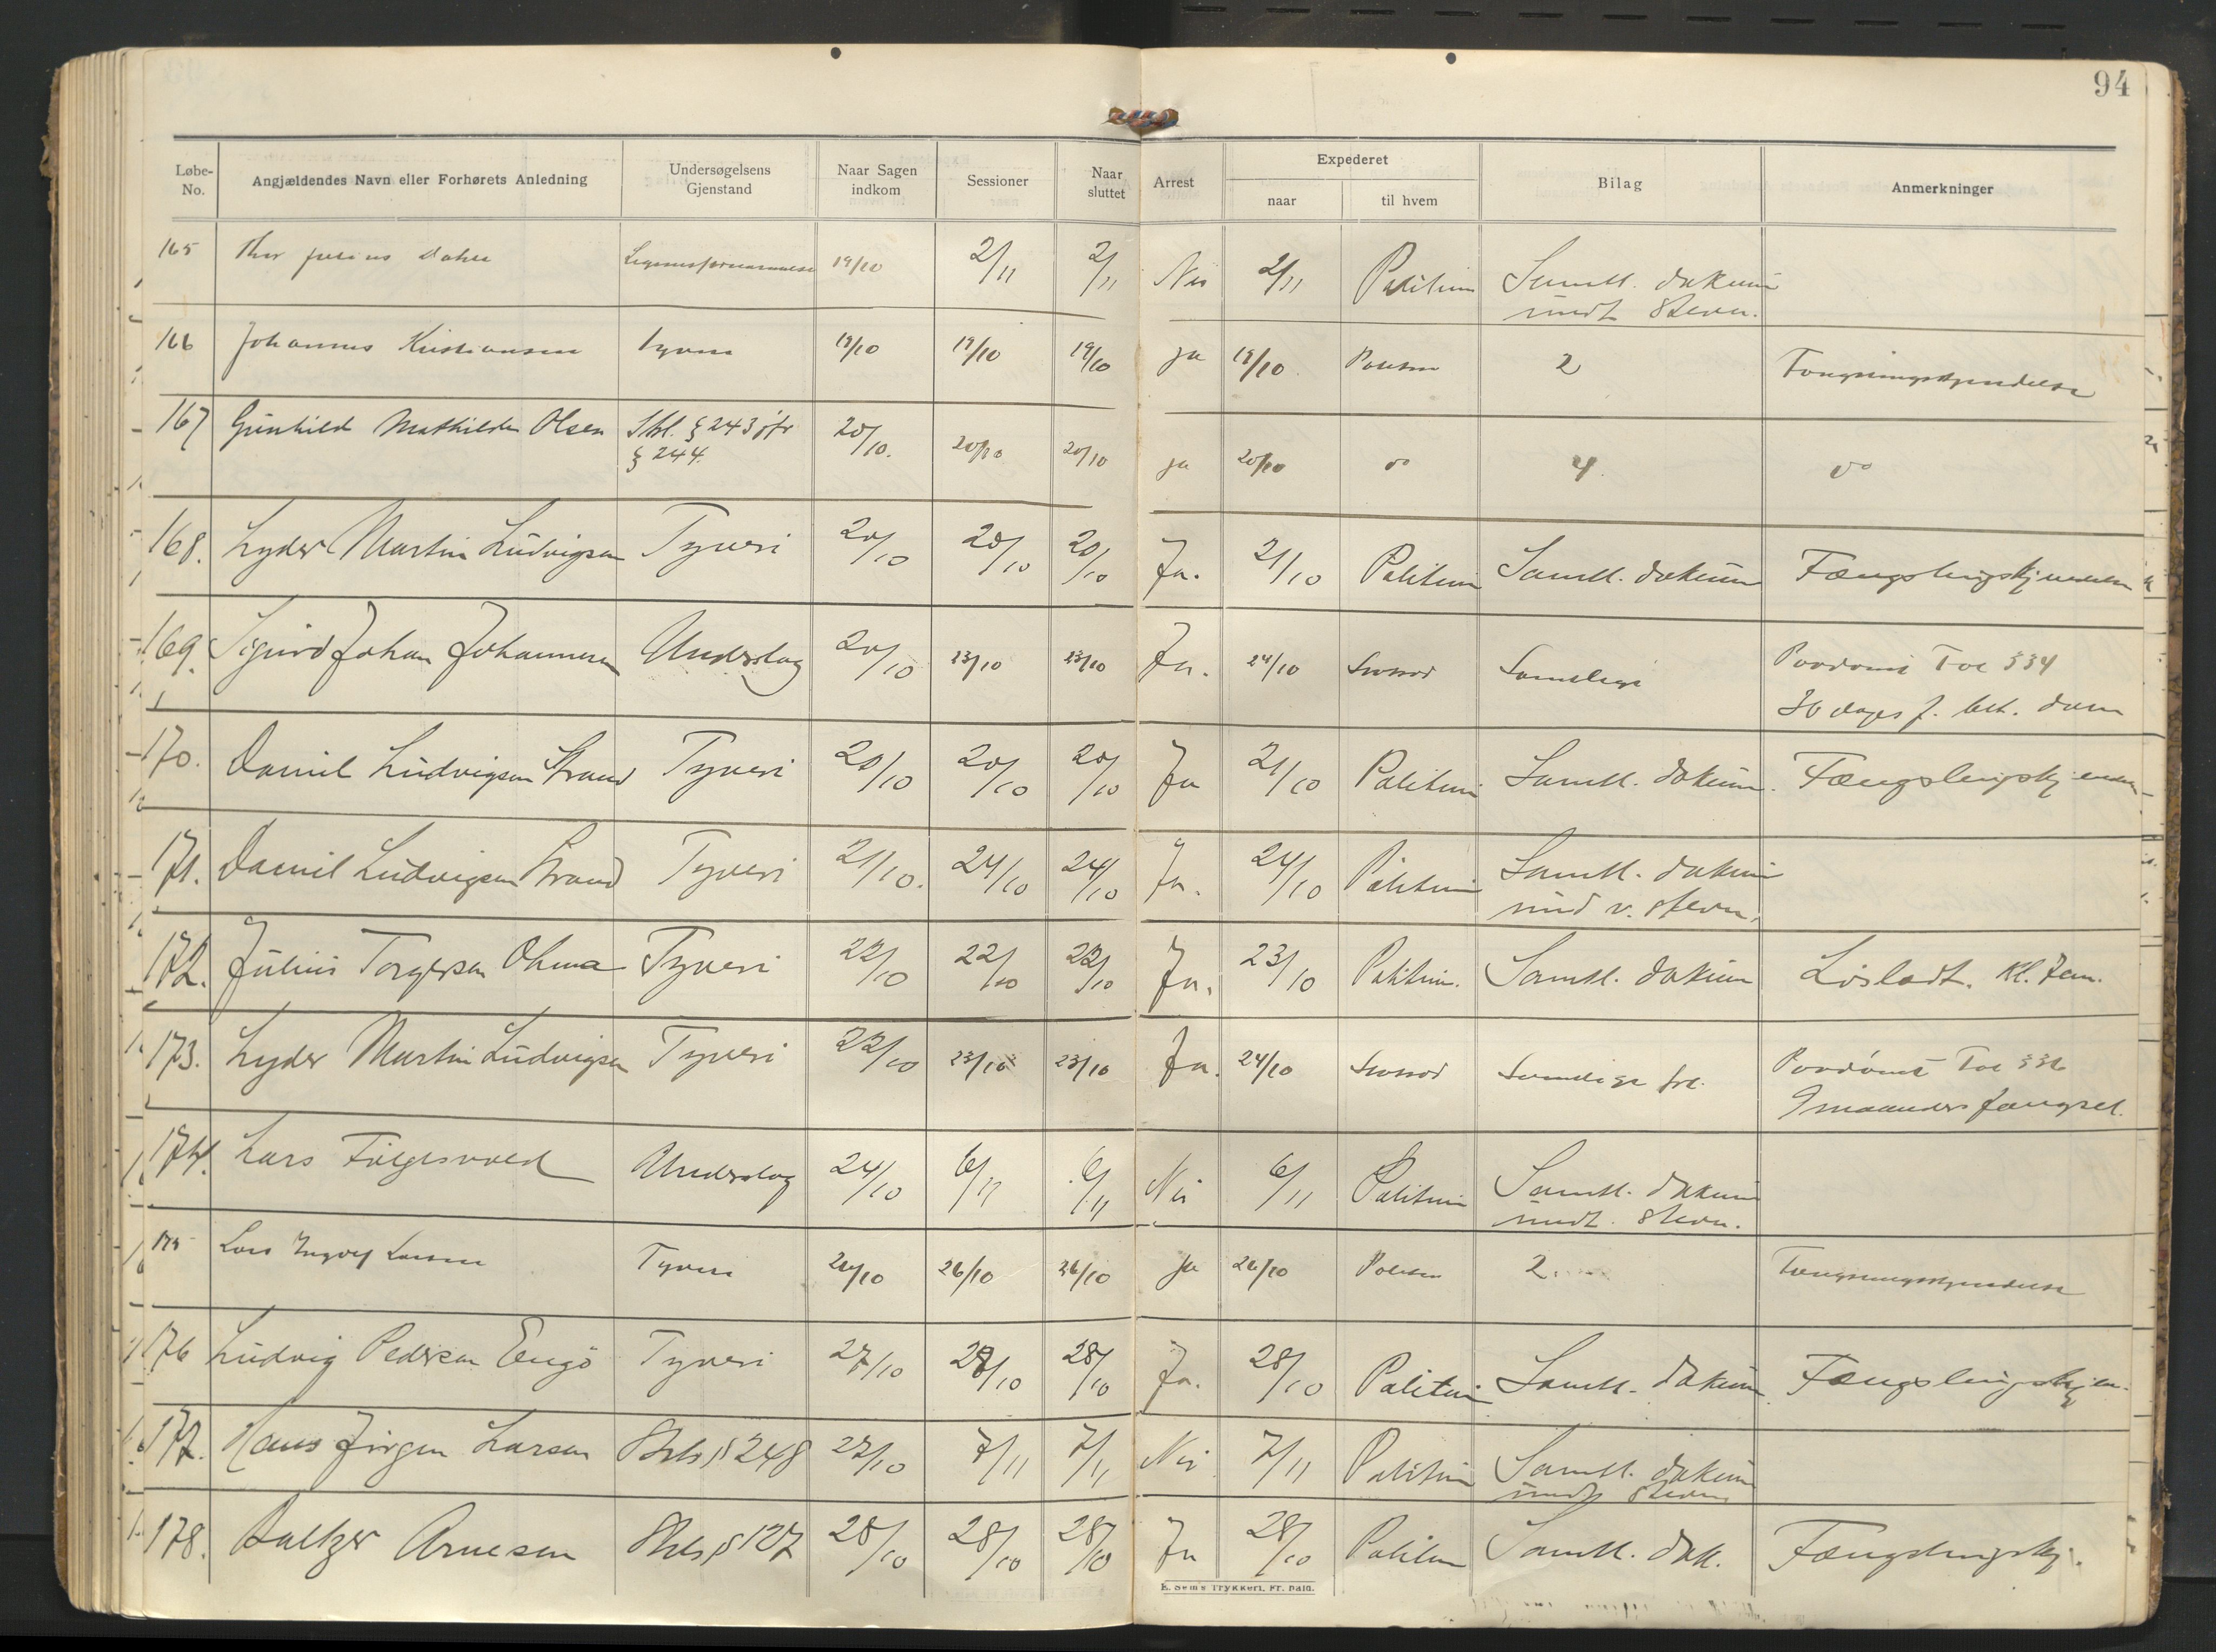 94
Løbe-No. Angjældendes Navn eller Forhørets Anledning Undersøgelsens Gjenstand Naar Sagen indkom Sessioner Naar sluttet Arrest Expederet naar til hvem Bilag Anmerkninger
165 Thor Julius Legemsfornærmelse 19/10 2/11 2/11 Nei 2/11 Politiet Samtl. dokum
undt stevn.
166 Johannes Kristiansen Tyveri 19/10 19/10 19/10 ja 19/10 Politiet 2 Fængslingskjendelse
167 Gunhild Mathilde Olsen Strl. § 243 jfr 20/10. 20/10 20/10 ja 20/10 do 4. do
§ 244.
168. Lyder Martin Ludvigsen Tyveri 20/10 20/10 20/10 Ja. 21/10 Politiet Samtl. dokum Fængslingskjendelse
169. Sigurd Johan Johannesen Underslag 20/10 23/10 23/10 Ja. 24/10 Samtlige Paadømt
30 dages f. bet. dom
170. Daniel Ludvigsen Strand Tyveri 20/10 20/10 20/10 Ja 21/10 Politiet Samtl. dokum. Fængslingskjendel
171. Daniel Ludvigsen Strand Tyveri 21/10. 24/10 24/10 Ja. 24/10 Politiet Samtl. dokum
und v. stevn.
172. Julius Torgersen Tyveri 22/10 22/10 22/10 Ja. 23/10 Politiet. Samtl. dokum Løsladt. kl. 7em.
173. Lyder Martin Ludvigsen Tyveri 22/10 23/10 23/10 Ja. 24/10 Samtlige Paadømt
9 maaneders fængsel.
174. Lars Underslag 24/10 6/11 6/11 Nei 6/11 Politiet Samtl. dokum
undt. stevn.
175 Lars Ingolf Larsen Tyveri 26/10 26/10 26/10 ja 26/10 Politiet 2. Fængslingskjendelse
176 Ludvig Pedersen Engø Tyveri 27/10 28/10 28/10 Ja. 28/10 Politiet Samtl. dokum Fængslingskjen-
177. Hans Jørgen Larsen Strls § 248 27/10 7/11 7/11 Nei 7/11 Politiet Samtl. dokum
undt stevn
178. Baltzer Arnesen Strls § 127 28/10 28/10 28/10 Ja 28/10 Politiet Samtl. dok. Fængslingskj.
E. Sem's Trykkeri, Fr.hald.